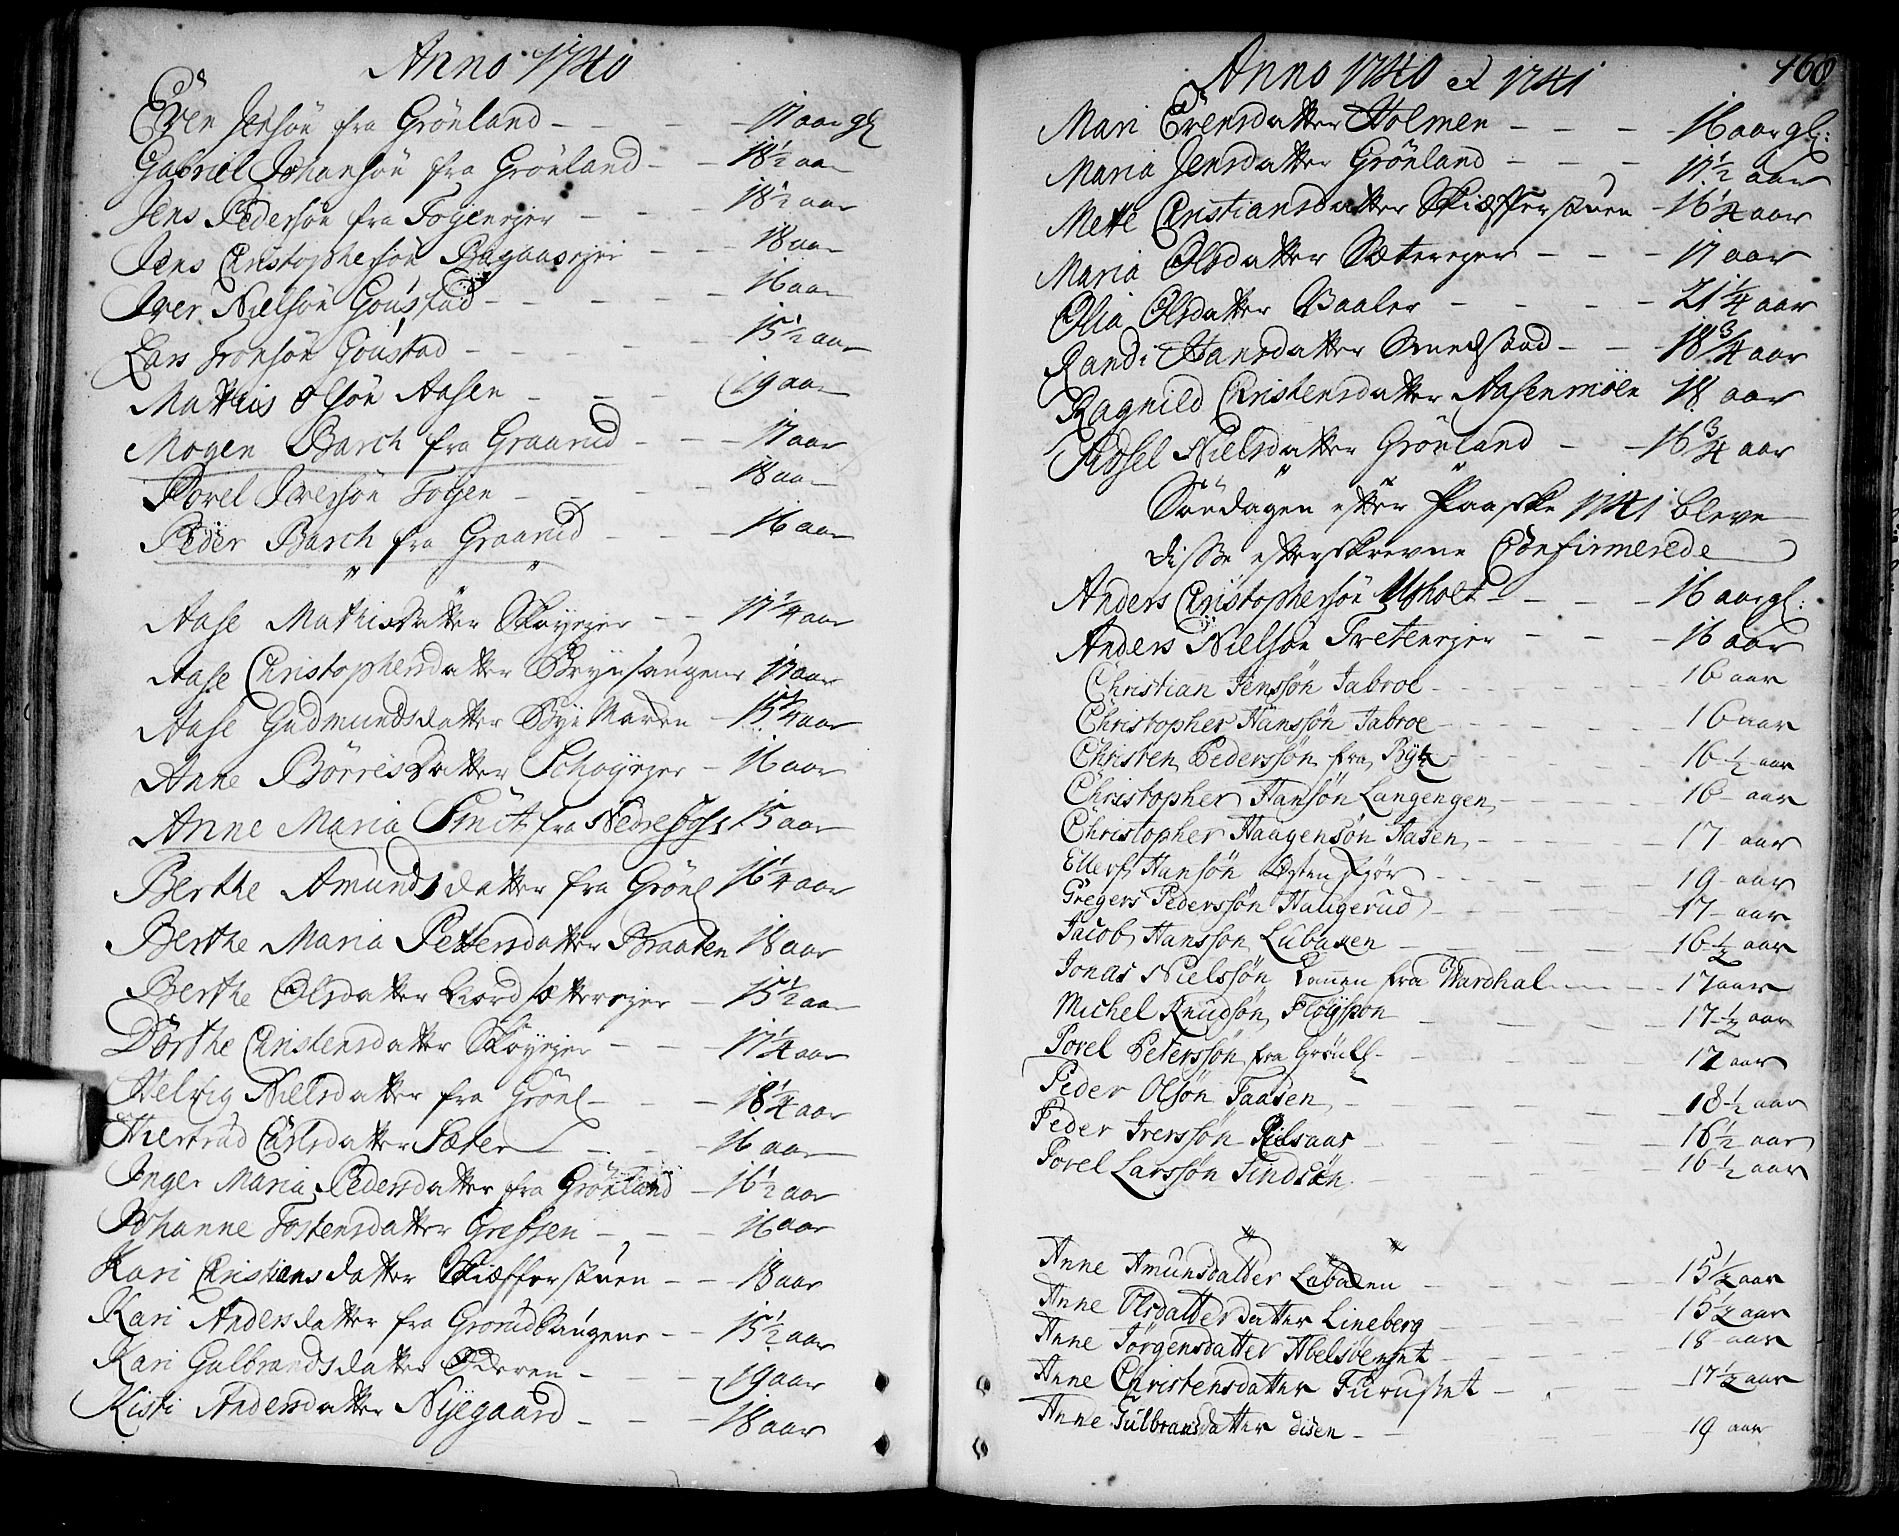 Anno 1740
Even Jensön fra Grönland - - - 17 aar gl
Gabriel Johansön fra Grönland - - 18½ aar
Jens Pedersön fra - - - 18½ aar
Jens Christophersön - - 18 aar
Iver Nielsön Goustad - - - - - 16 aar
Lars Joensön Goustad - - - - - 15½ aar
Mathis Olsön Aasen - - - 19 aar
Mogen Barch fra Graarud - - - 17 aar
Povel Iversön Togen - - - - 18 aar
Peder Barch fra Graarud - - - 16 aar
Aase Mathisdatter Skøyejer - - 17¼ aar
Aase Christophersdatter Brynshaugene 17 aar
Aase Gudmundsdatter - 15¼ aar
Anne Börresdatter Schøyejer - 16 aar
Anne Maria Smit fra 15 aar
Berthe Amundsdatter fra Grönl 16¼ aar
Berthe Maria Pettersdatter Braaten 18 aar
Berthe Olsdatter - 15½ aar
Dorthe Christensdatter Skøyejer - - - 17¼ aar
Helvig Nielsdatter fra Grönl - - - 18¼ aar
Giertrud Carlsdatter Sæter - - - 16 aar
Inger Maria Pedersdatter fra Grönland - 16½ aar
Johanne Tostensdatter Grefsen - - - 16 aar
Kari Christiansdatter Skiefferstuen - - 18 aar
Kari Andersdatter fra Grorudhaugene - - 15½ aar
Kari Gulbrandsdatter Oderen - - - 19 aar
Kisti Andersdatter Nyegaard - - - 18 aar
Anno 1740 et 1741
168
Mari Evensdatter Holmen - - - 16 aar gl:
Maria Jensdatter Grönland - - - 17½ aar
Mette Christiansdatter Skiefferstuen - 16¼ aar
Maria Olsdatter Sæterejer - - - 17 aar
Olia Olsdatter Baaler - - - - 21¼ aar
Randi Hansdatter Smedstad - - - 18¾ aar
Ragnild Christensdatter Aasenmöen 18 aar
Sidsel Nielsdatter Grönland - - 16¾ aar
Söndagen efter Paaske 1741 bleve
disse efterskrevne Confirmerede
Anders Christophersön Ulsholt - - - 16 aar gl:
Anders Nielsön Tretenejer - - - 16 aar
Christian Jenssön Jabroe - - - - 16 aar
Christopher Hanssön Jabroe - - - - 16 aar
Christen Pederssön fra - - - - 16½ aar
Christopher Hansön Langengen - - - 16 aar
Christopher Haagensön Aasen - - - - 17 aar
Ellef Hansön - - - - 19 aar
Gregers Pederssön Haugerud - - - - 17 aar
Jacob Hansson Lubaken - - - - 16½ aar
Jonas Nielssön fra Wardhal - - - 17 aar
Michel Knudsön Flöysson - - - 17½ aar
Povel Peterssön fra Grönl - - - - 17 aar
Peder Olsön Taasen - - - - 18½ aar
Peder Iverssön - - - - 16½ aar
Povel Larssön - - - - 16½ aar
Anne Amunsdatter Labaken - - - 15½ aar
Anne Olsdatter datter Lineberg - - - 15½ aar
Anne Jörgensdatter - - - - 18 aar
Anne Christensdatter Furuset - - - 17½ aar
Anne Gulbransdatter disen - - - 19 aar